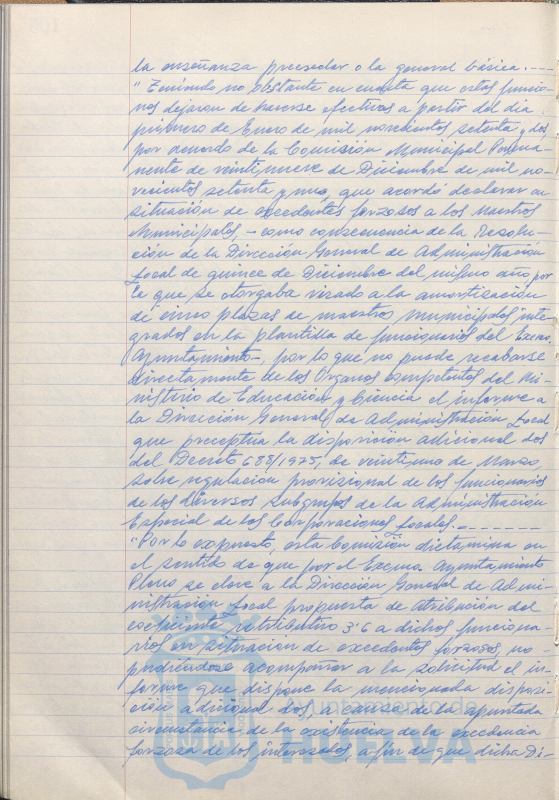 la enseñanza preescolar o la general básica.----
"Teniendo no obstante en cuenta que estas funcio-
nes dejaron de hacerse efectivas a partir del día
primero de Enero de mil novecientos setenta y dos
por acuerdo de la Comisión Municipal Perma-
nente de veintinueve de Diciembre de mil no-
vecientos setenta y uno, que acordó declarar en
situación de excedentes forzosos a los Maestros
Municipales - como consecuencia de la Resolu-
ción de la Dirección General de Administración
Local de quince de Diciembre del mismo año por
la que se otorgaba visado a la amortización
de cinco plazas de maestros municipales inte-
grados en la plantilla de funcionarios del Excmo.
Ayuntamiento-, por lo que no puede recabarse
directamente de los Organos competentes del Mi-
nisterio de Educación y Ciencia el informe a
la Dirección General de Administración Local
que preceptua la disposición adicional dos
del Decreto 688/1975, de veintiuno de Marzo,
sobre regulación provisional de los funcionarios
de los diversos subgrupos de la Administración
Especial de las Corporaciones Locales.-------
"Por lo expuesto, esta Comisión dictamina en
el sentido de que por el Excmo. Ayuntamiento
Pleno se eleve a la Dirección General de Admi-
nistración Local propuesta de atribución del
coeficiente retributivo 3'6 a dichos funciona-
rios en situación de excedentes forzosos, no
pudiéndose acompañar a la solicitud el in-
forme que dispone la mencionada disposi-
ción adicional dos, a causa de la apuntada
circunstancia de la existencia de la excedencia
forzosa de los interesados, a fin de que dicha Di-
Ayuntamiento de
HUELVA